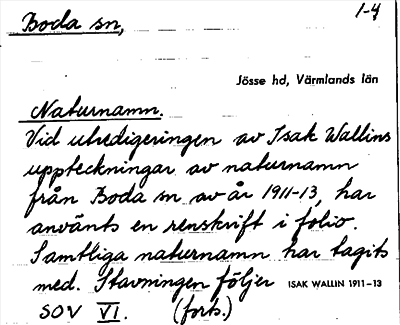 Boda sn,
1-4
Jösse hd, Värmlands län
Naturnamn.
Vid utredigeringen av Isak Wallins
uppteckningar av naturnamn
från Boda sn av år 1911-13, har
använts en renskrift i folio.
Samtliga naturnamn har tagits
med. Stavningen följer ISAK WALLIN 1911-13
SOV VI. (forts.)